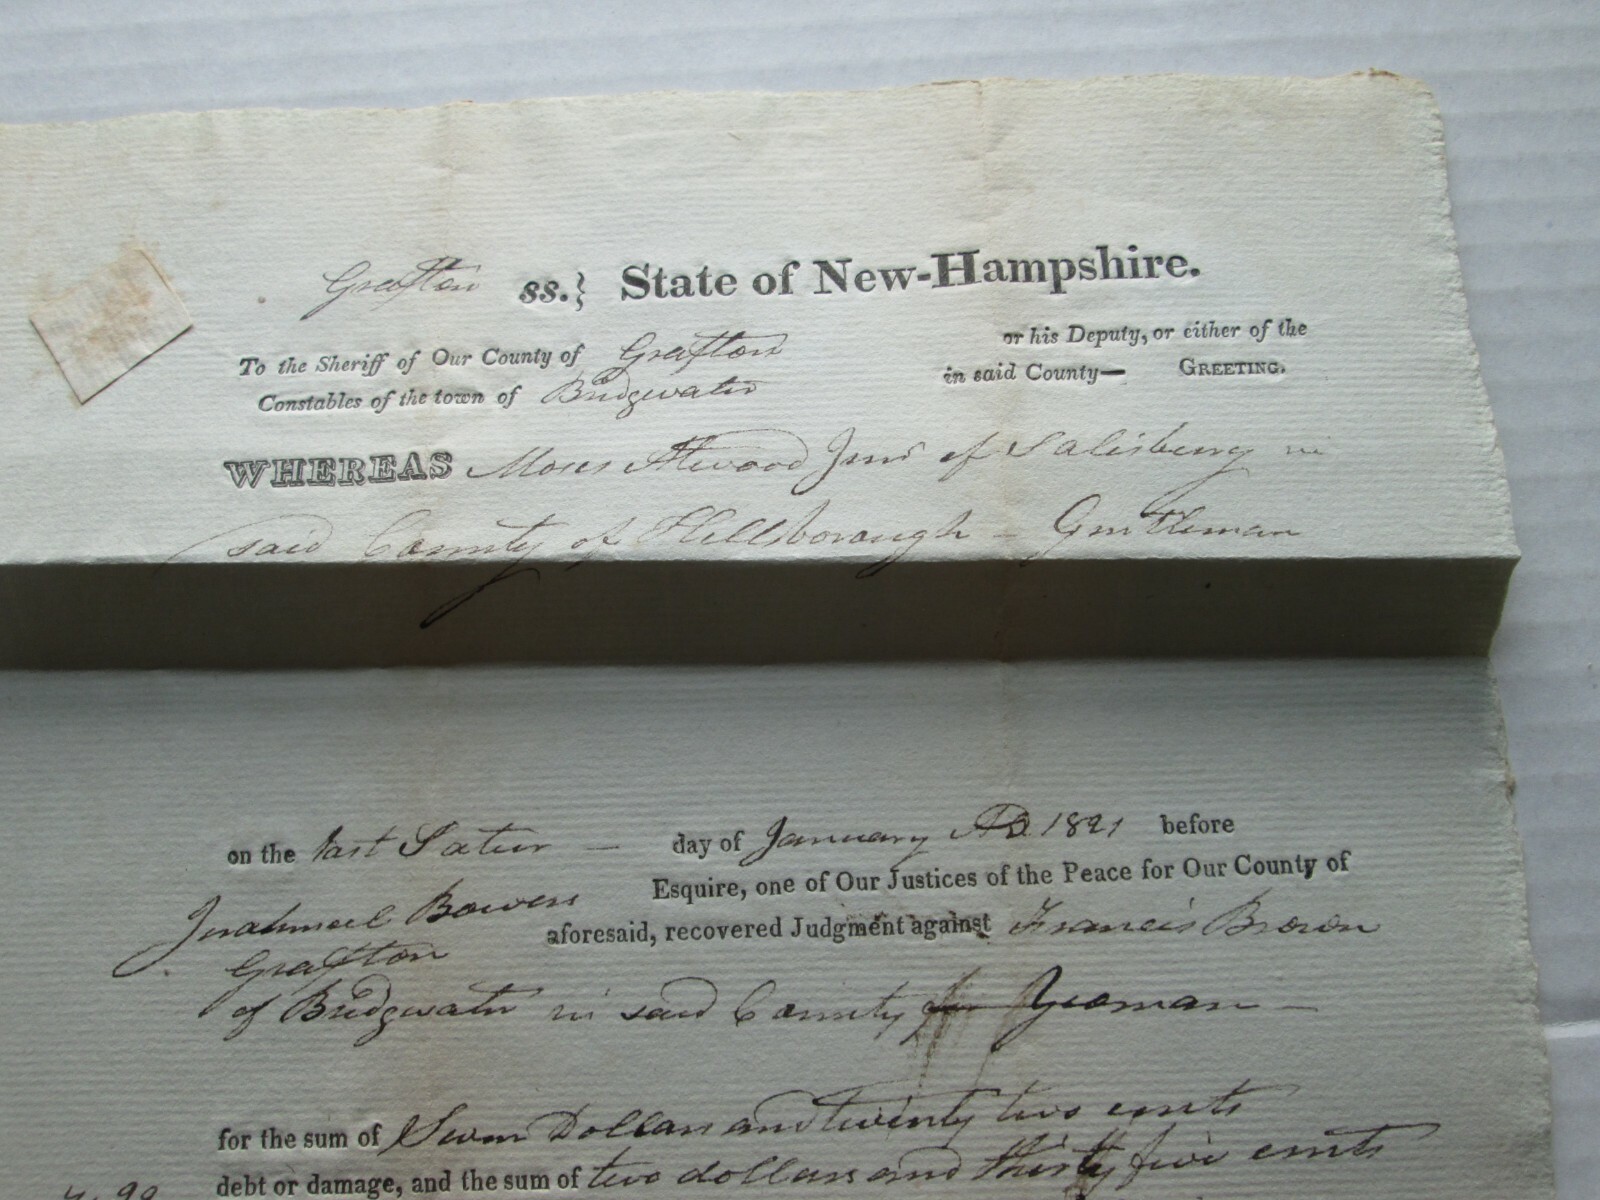 Grafton ss.} State of New-Hampshire.
To the Sheriff of Our County of Grafton or his Deputy, or either of the
Constables of the town of Bridgwater in said County— GREETING.
WHEREAS Moses Atwood Junr of Salisbury in
said County of Hillsborough – Gentleman
on the last Satur – day of January AD. 1821 before
Jerahmeel Bowers Esquire, one of Our Justices of the Peace for Our County of
Grafton aforesaid, recovered Judgment against Francis Brown
of Bridgwater in said County Yeoman –
for the sum of Seven Dollars and twenty two cents
debt or damage, and the sum of two dollars and thirty five cents